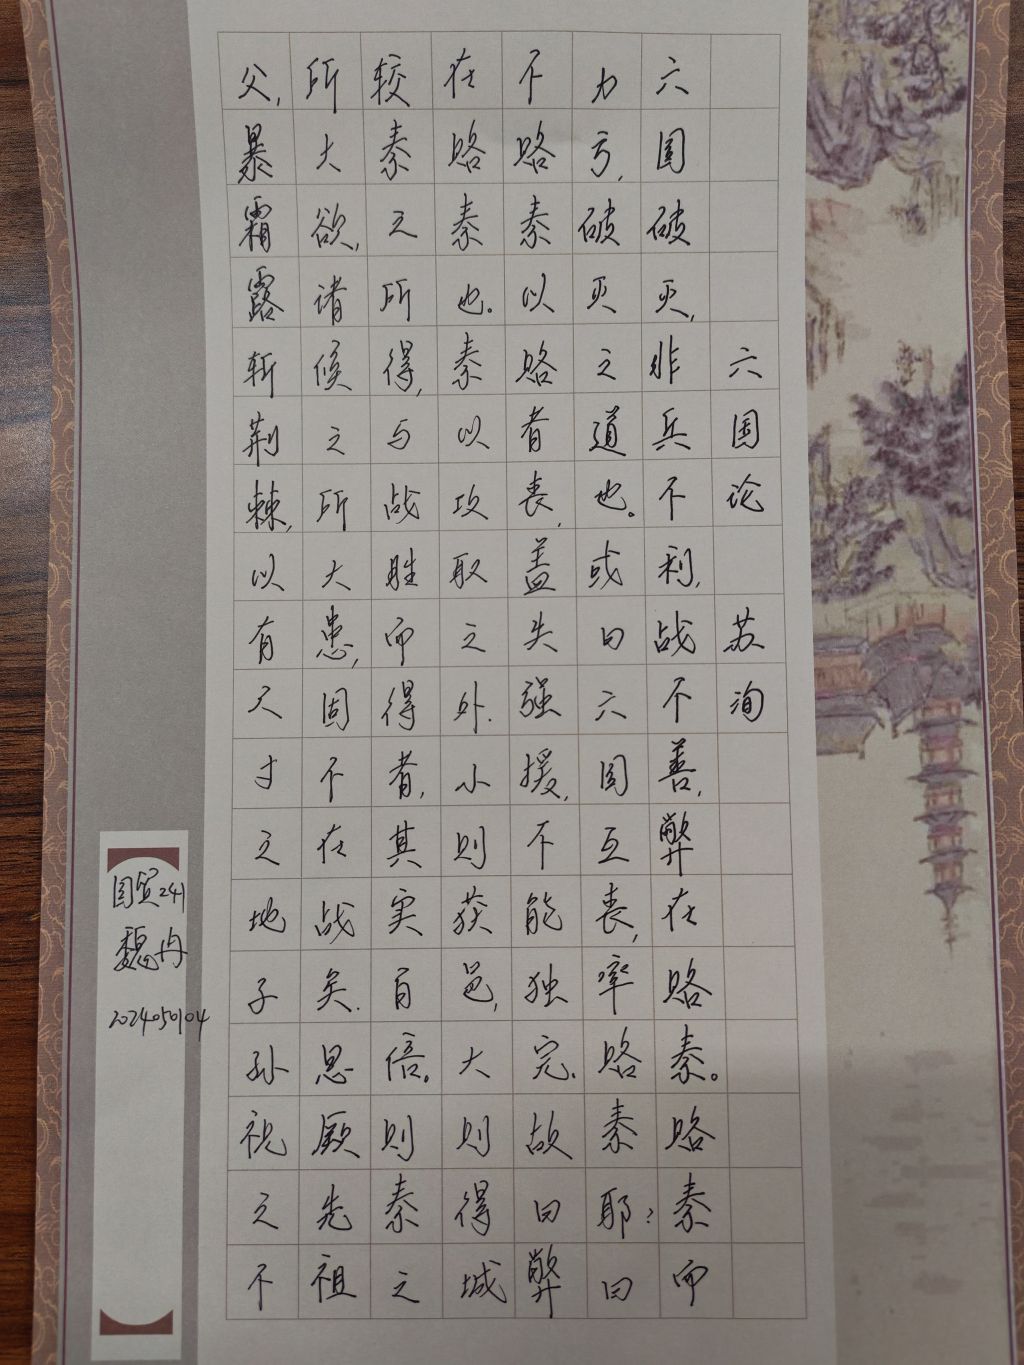 六国论 苏洵
六国破灭,非兵不利,战不善,弊在赂秦。赂秦而
力亏,破灭之道也。或曰六国互丧,率赂秦耶?曰
不赂秦以赂者丧,盖失强援,不能独完.故曰弊
在赂秦也。秦以攻取之外.小则获邑,大则得城
较秦之所得,与战胜而得者,其实百倍。则秦之
所大欲,诸候之所大患,固不在战矣.思厥先祖
父,暴霜露斩荆棘,以有尺寸之地子孙视之不
国贸241
魏冉
2024050104